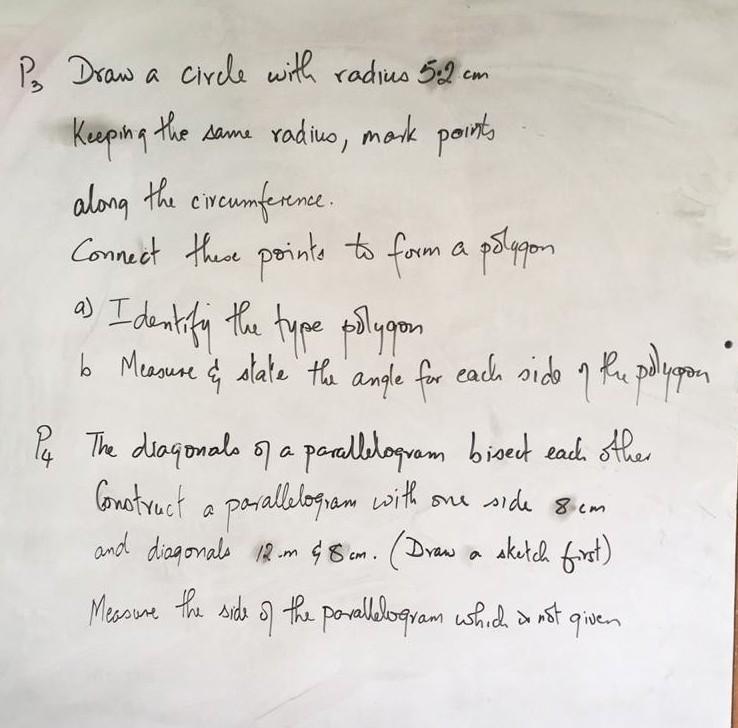 P3 Draw a circle with radius 5.2 cm
Keeping the same radius, mark points
along the circumference.
Connect these points to form a polygon
a) Identify the type polygon
b Measure & state the angle for each side of the polygon
P4 The diagonals of a parallelogram bisect each other
Construct a parallelogram with one side 8 cm
and diagonals 12 cm & 8 cm. (Draw a sketch first)
Measure the side of the parallelogram which is not given